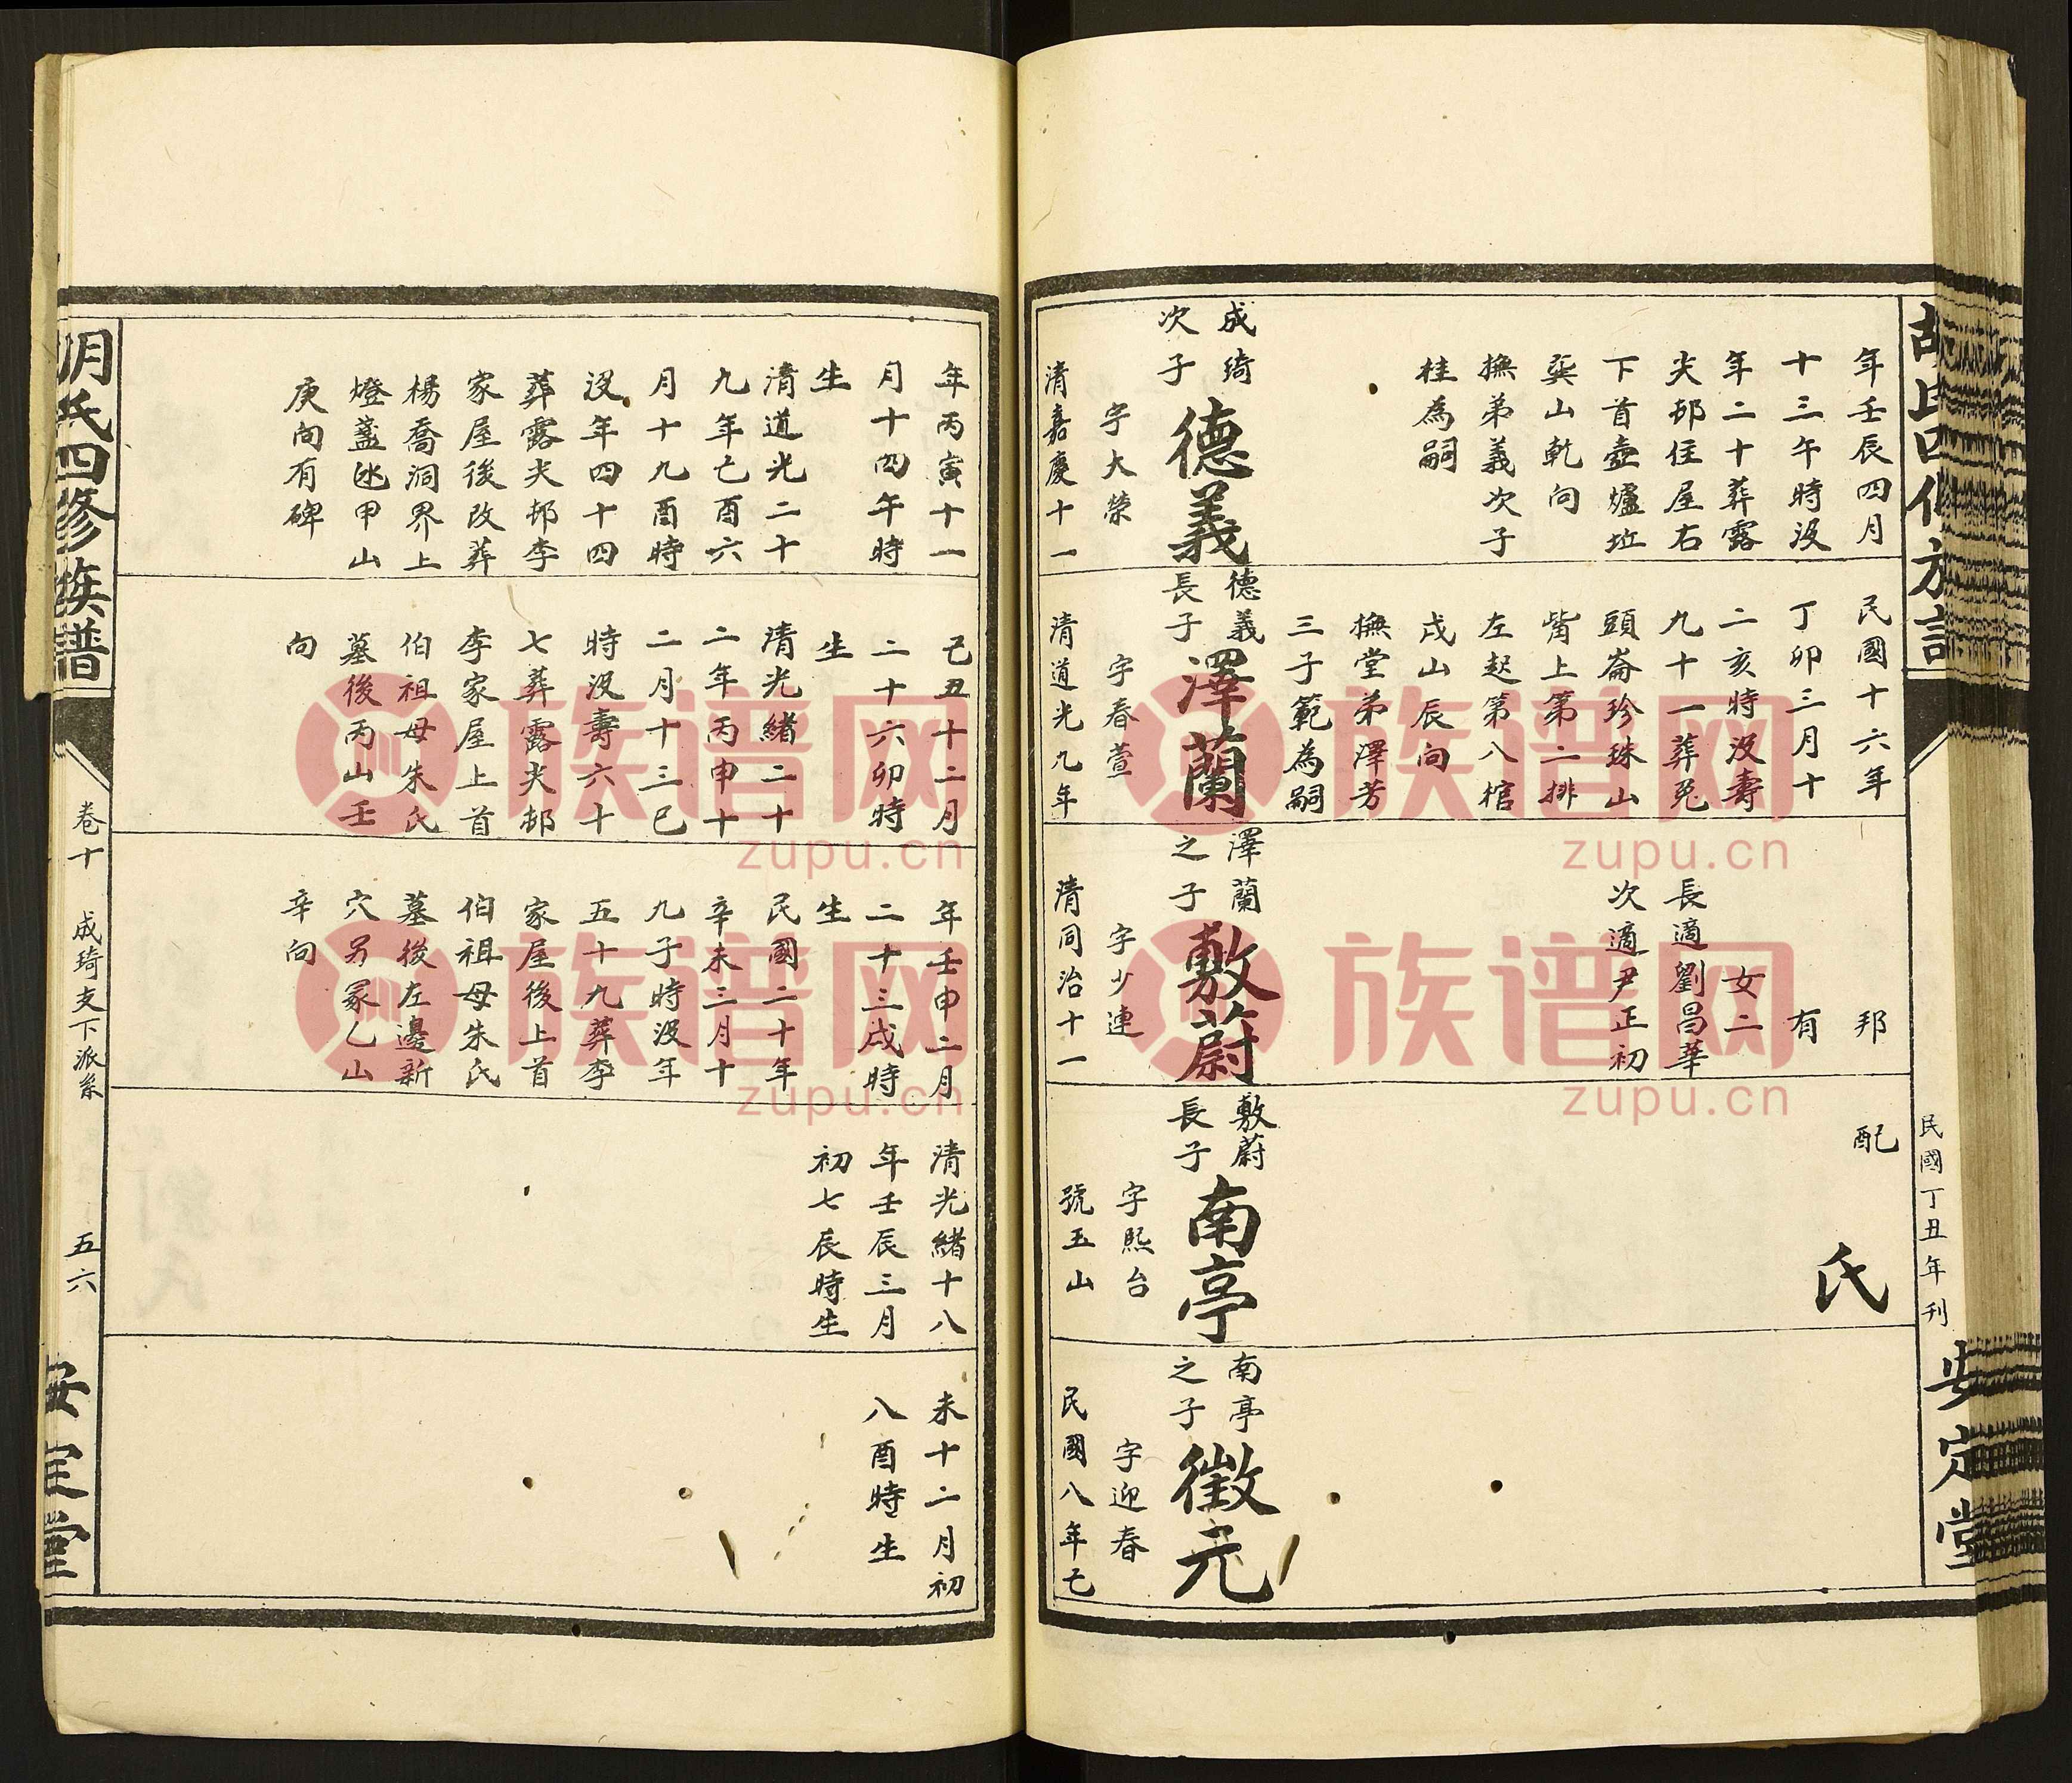 民國丁丑年刊
安定堂
年壬辰四月
十三午時没
年二十葬露
尖邨住屋右
下首壺爐坵
巽山乾向
撫弟義次子
桂為嗣
成綺
次子
德義
字大榮
清嘉慶十一
民國十六年
丁卯三月十
二亥時没壽
九十一葬兎
頭崙珍珠山
嘴上第二排
左起第八棺
戌山辰向
撫堂弟澤芳
三子範為嗣
德義
長子
澤蘭
字春萱
清道光九年
邦
有
女二
長適劉昌華
次適尹正初
澤蘭
之子
敷蔚
字少連
清同治十一
配
氏
敷蔚
長子
南亭
字熙台
號玉山
南亭
之子
徵元
字迎春
民國八年己
年丙寅十一
月十四午時
生
清道光二十
九年己酉六
月十九酉時
没年四十四
葬露尖邨李
家屋後改葬
楊喬洞界上
燈盞氹甲山
庚向有碑
己丑十二月
二十六卯時
生
清光緒二十
二年丙申十
二月十三巳
時没壽六十
七葬露尖邨
李家屋上首
伯祖母朱氏
墓後丙山壬
向
年壬申二月
二十三戌時
生
民國二十年
辛未三月十
九子時没年
五十九葬李
家屋後上首
伯祖母朱氏
墓後左邊新
穴另冢乙山
辛向
清光緒十八
年壬辰三月
初七辰時生
未十二月初
八酉時生
胡氏四修族譜
卷十
成琦支下派系
五六
安定堂
族谱网
zupu.cn
族谱网
zupu.cn
族谱网
zupu.cn
族谱网
zupu.cn